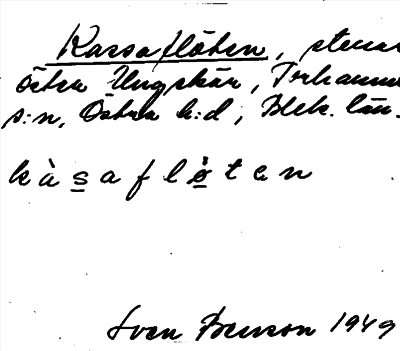 Kassaflöten, stenar
östra Ungskär, Torhamns
s:n, Östra h:d, Blek. län.
kàsaflòten
Sven Benson 1949